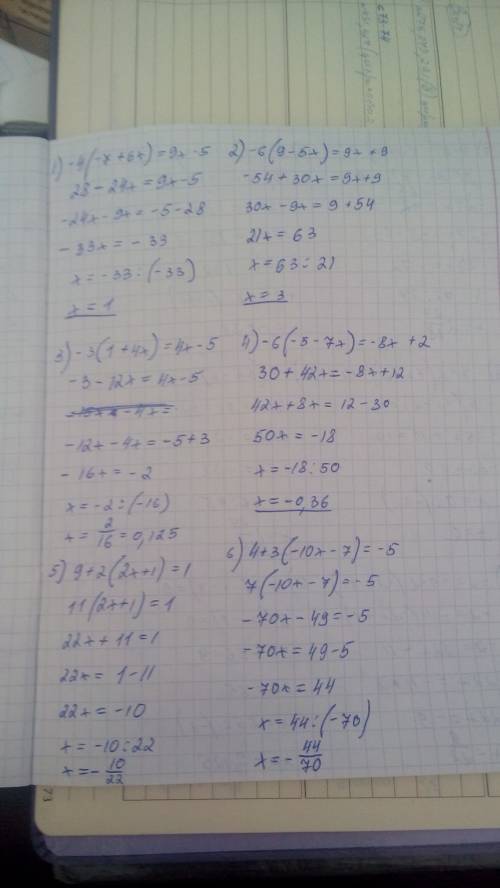 1) -4(-7+6x)=9x-5
28-24x=9x-5
-24x-9x=-5-28
-33x=-33
x=-33:(-33)
x=1
2) -6(9-5x)=9x+9
-54+30x=9x+9
30x-9x=9+54
21x=63
x=63:21
x=3
3) -3(1+4x)=4x-5
-3-12x=4x-5
-12x-4x=-5+3
-16x=-2
x=-2:(-16)
x=2/16=0,125
4) -6(-5-7x)=-8x+2
30+42x=-8x+12
42x+8x=12-30
50x=-18
x=-18:50
x=-0,36
5) 9+2(2x+1)=1
11(2x+1)=1
22x+11=1
22x=1-11
22x=-10
x=-10:22
x=-10/22
6) 4+3(-10x-7)=-5
7(-10x-7)=-5
-70x-49=-5
-70x=49-5
-70x=44
x=44:(-70)
x=-44/70
73